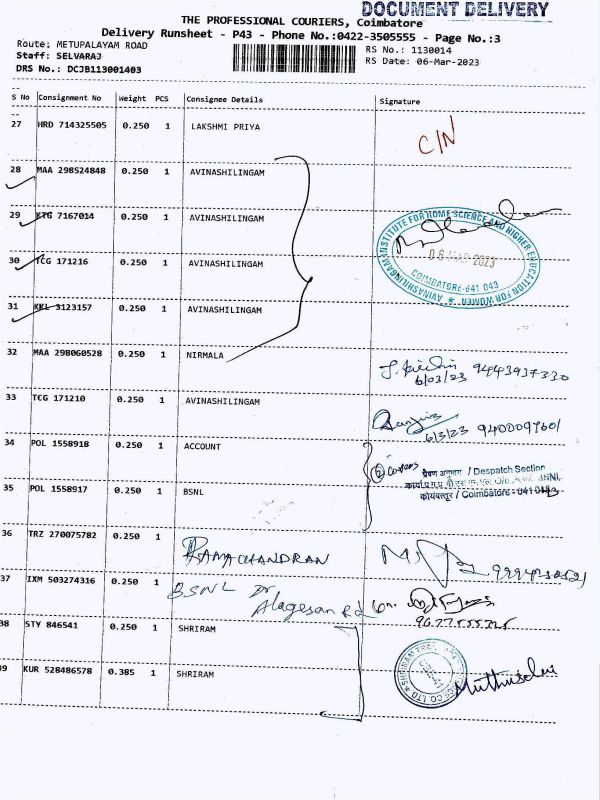 DOCUMENT DELIVERY
THE PROFESSIONAL COURIERS, Coimbatore
Delivery Runsheet - P43 - Phone No.:0422-3505555 - Page No.:3
Route: METUPALAYAM ROAD
Staff: SELVARAJ
DRS No.: DCJB113001403
RS No.: 1130014
RS Date: 06-Mar-2023
S No Consignment No Weight PCS Consignee Details Signature
27 HRD 714325505 0.250 1 LAKSHMI PRIYA C/N
28 MAA 298524848 0.250 1 AVINASHILINGAM
29 KTG 7167014 0.250 1 AVINASHILINGAM
30 TCG 171216 0.250 1 AVINASHILINGAM
AVINASHILINGAM INSTITUTE FOR HOME SCIENCE AND HIGHER EDUCATION FOR WOMEN
06 MAR 2023
COIMBATORE-641 043
31 KKL 3123157 0.250 1 AVINASHILINGAM
32 MAA 298060528 0.250 1 NIRMALA
6/03/23 9443937330
33 TCG 171210 0.250 1 AVINASHILINGAM
6/3/23 9400097601
34 POL 1558918 0.250 1 ACCOUNT
② Covers
प्रेषण अनुभाग / Despatch Section
BSNL
कोयंबत्तूर / Coimbatore
35 POL 1558917 0.250 1 BSNL
36 TRZ 270075782 0.250 1 RAMACHANDRAN
37 IXM 503274316 0.250 1 BSNL Dr
Alagesan Rd
38 STY 846541 0.250 1 SHRIRAM
39 KUR 528486578 0.385 1 SHRIRAM
Muthuselvi